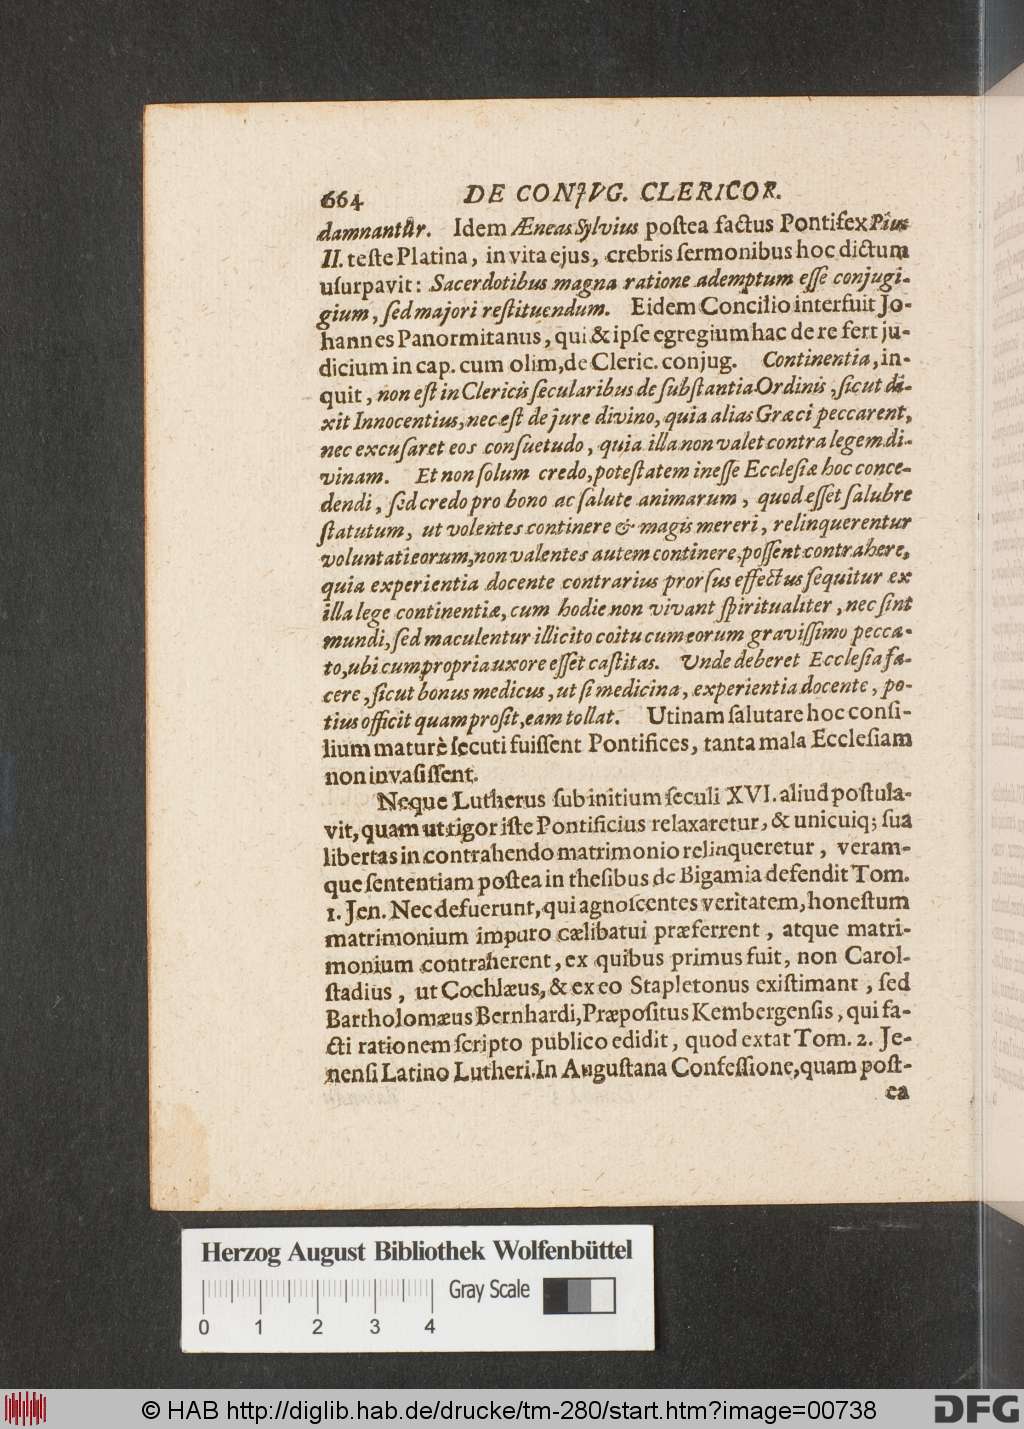 664 DE CONJVG. CLERICOR.
damnantur. Idem Æneas Sylvius postea factus Pontifex Pius
II. teste Platina, in vita ejus, crebris sermonibus hoc dictum
usurpavit: Sacerdotibus magna ratione ademptum esse conjugi-
gium, sed majori restituendum. Eidem Concilio interfuit Jo-
hannes Panormitanus, qui & ipse egregium hac de re fert ju-
dicium in cap. cum olim, de Cleric. conjug. Continentia, in-
quit, non est in Clericis secularibus de substantia Ordinis, sicut di-
xit Innocentius, nec est de jure divino, quia alias Græci peccarent,
nec excusaret eos consuetudo, quia illa non valet contra legem di-
vinam. Et non solum credo, potestatem inesse Ecclesiæ hoc conce-
dendi, sed credo pro bono ac salute animarum, quod esset salubre
statutum, ut volentes continere & magis mereri, relinquerentur
voluntati eorum, non valentes autem continere, possent contrahere,
quia experientia docente contrarius prorsus effectus sequitur ex
illa lege continentiæ, cum hodie non vivant spiritualiter, nec sint
mundi, sed maculentur illicito coitu cum eorum gravissimo pecca-
to, ubi cum propria uxore esset castitas. Unde deberet Ecclesia fa-
cere, sicut bonus medicus, ut si medicina, experientia docente, po-
tius officit quam prosit, eam tollat. Utinam salutare hoc consi-
lium maturè secuti fuissent Pontifices, tanta mala Ecclesiam
non invasissent.
Neque Lutherus sub initium seculi XVI. aliud postula-
vit, quam ut rigor iste Pontificius relaxaretur, & unicuiq; sua
libertas in contrahendo matrimonio relinqueretur, veram-
que sententiam postea in thesibus de Bigamia defendit Tom.
1. Jen. Nec defuerunt, qui agnoscentes veritatem, honestum
matrimonium impuro cælibatui præferrent, atque matri-
monium contraherent, ex quibus primus fuit, non Carol-
stadius, ut Cochlæus, & ex eo Stapletonus existimant, sed
Bartholomæus Bernhardi, Præpositus Kembergensis, qui fa-
cti rationem scripto publico edidit, quod extat Tom. 2. Je-
nensi Latino Lutheri. In Augustana Confessione, quam post-
ea
Herzog August Bibliothek Wolfenbüttel
Gray Scale
0 1 2 3 4
© HAB http://diglib.hab.de/drucke/tm-280/start.htm?image=00738
DFG